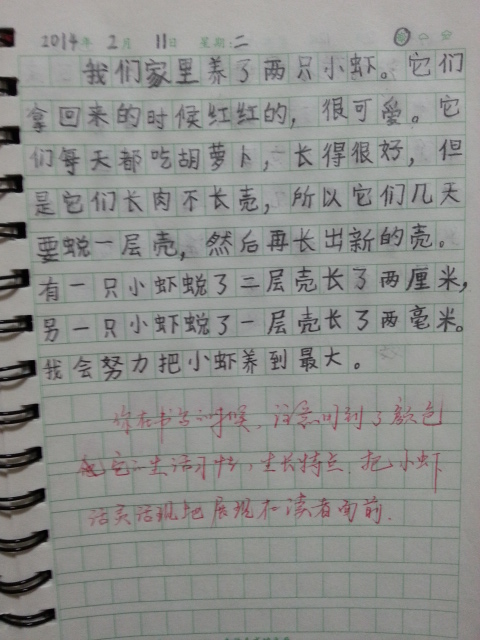 2014年 2月 11日 星期:二
我们家里养了两只小虾。它们
拿回来的时候红红的，很可爱。它
们每天都吃胡萝卜，长得很好，但
是它们长肉不长壳，所以它们几天
要蜕一层壳，然后再长出新的壳。
有一只小虾蜕了二层壳长了两厘米，
另一只小虾蜕了一层壳长了两毫米。
我会努力把小虾养到最大。
你在书写时候，注意到了颜色
它的生活习性，生长特点，把小虾
活灵活现地展现在读者面前.